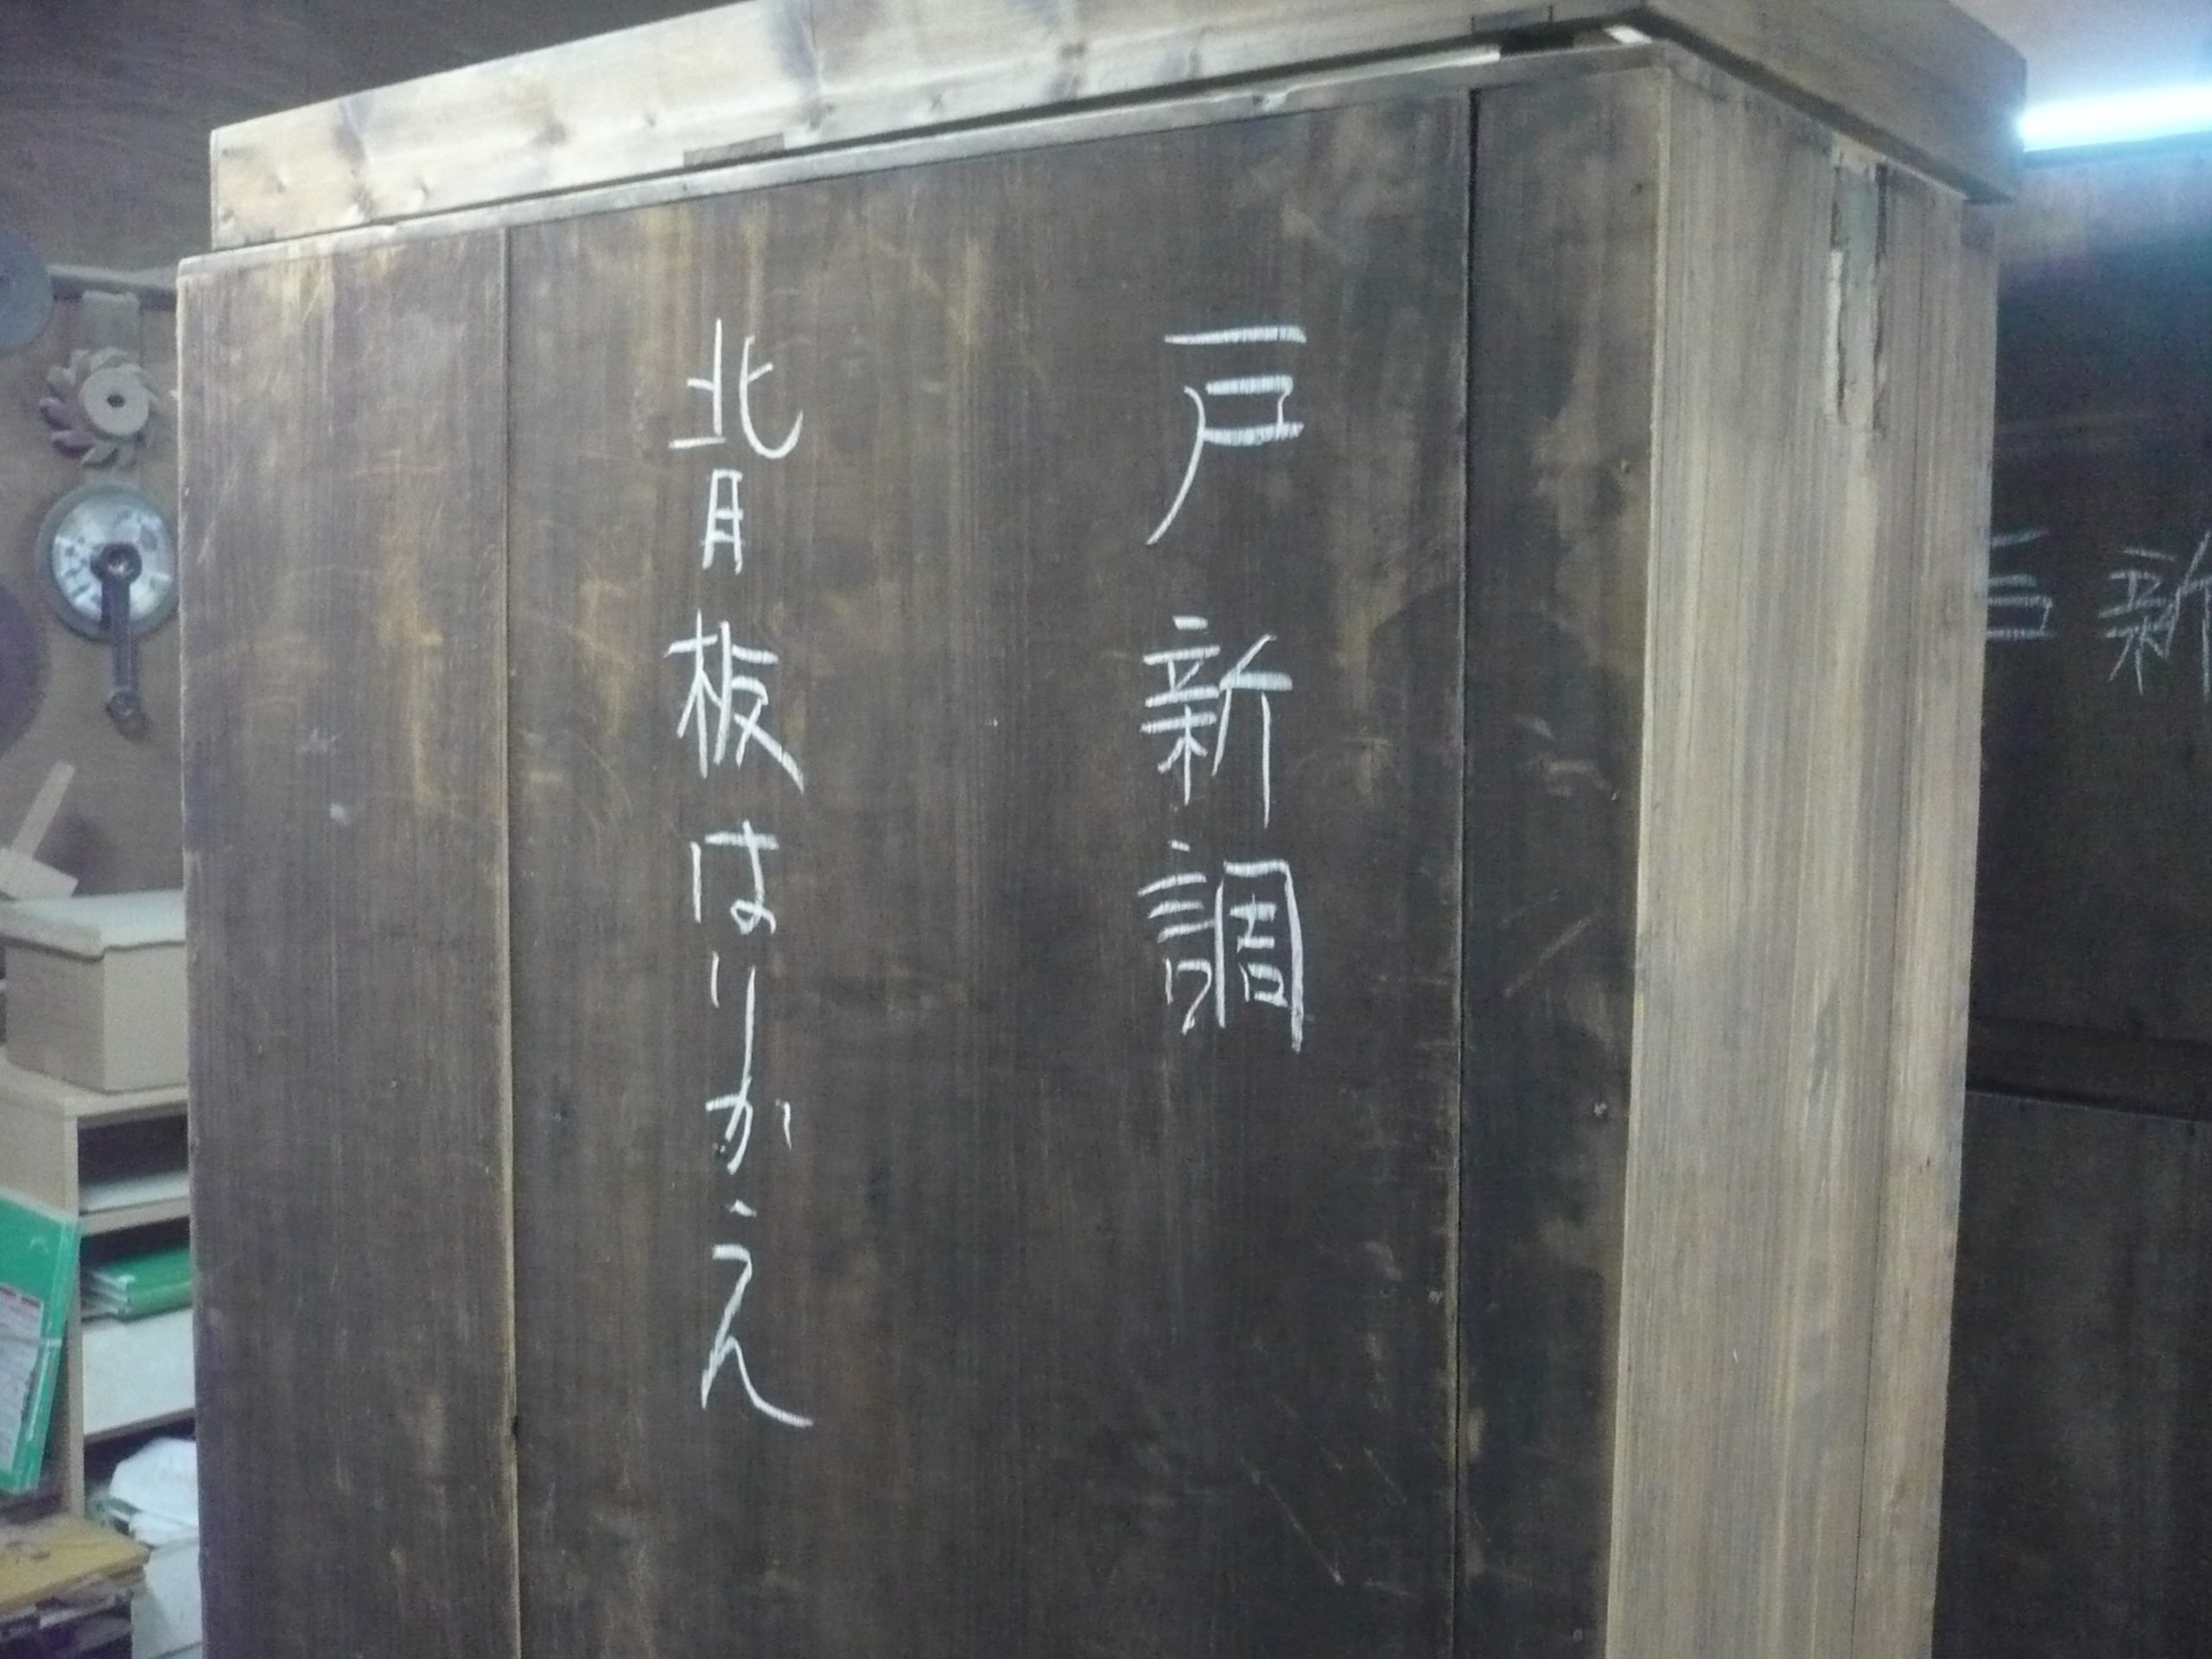 戸新調
背板はりかえ
戸新